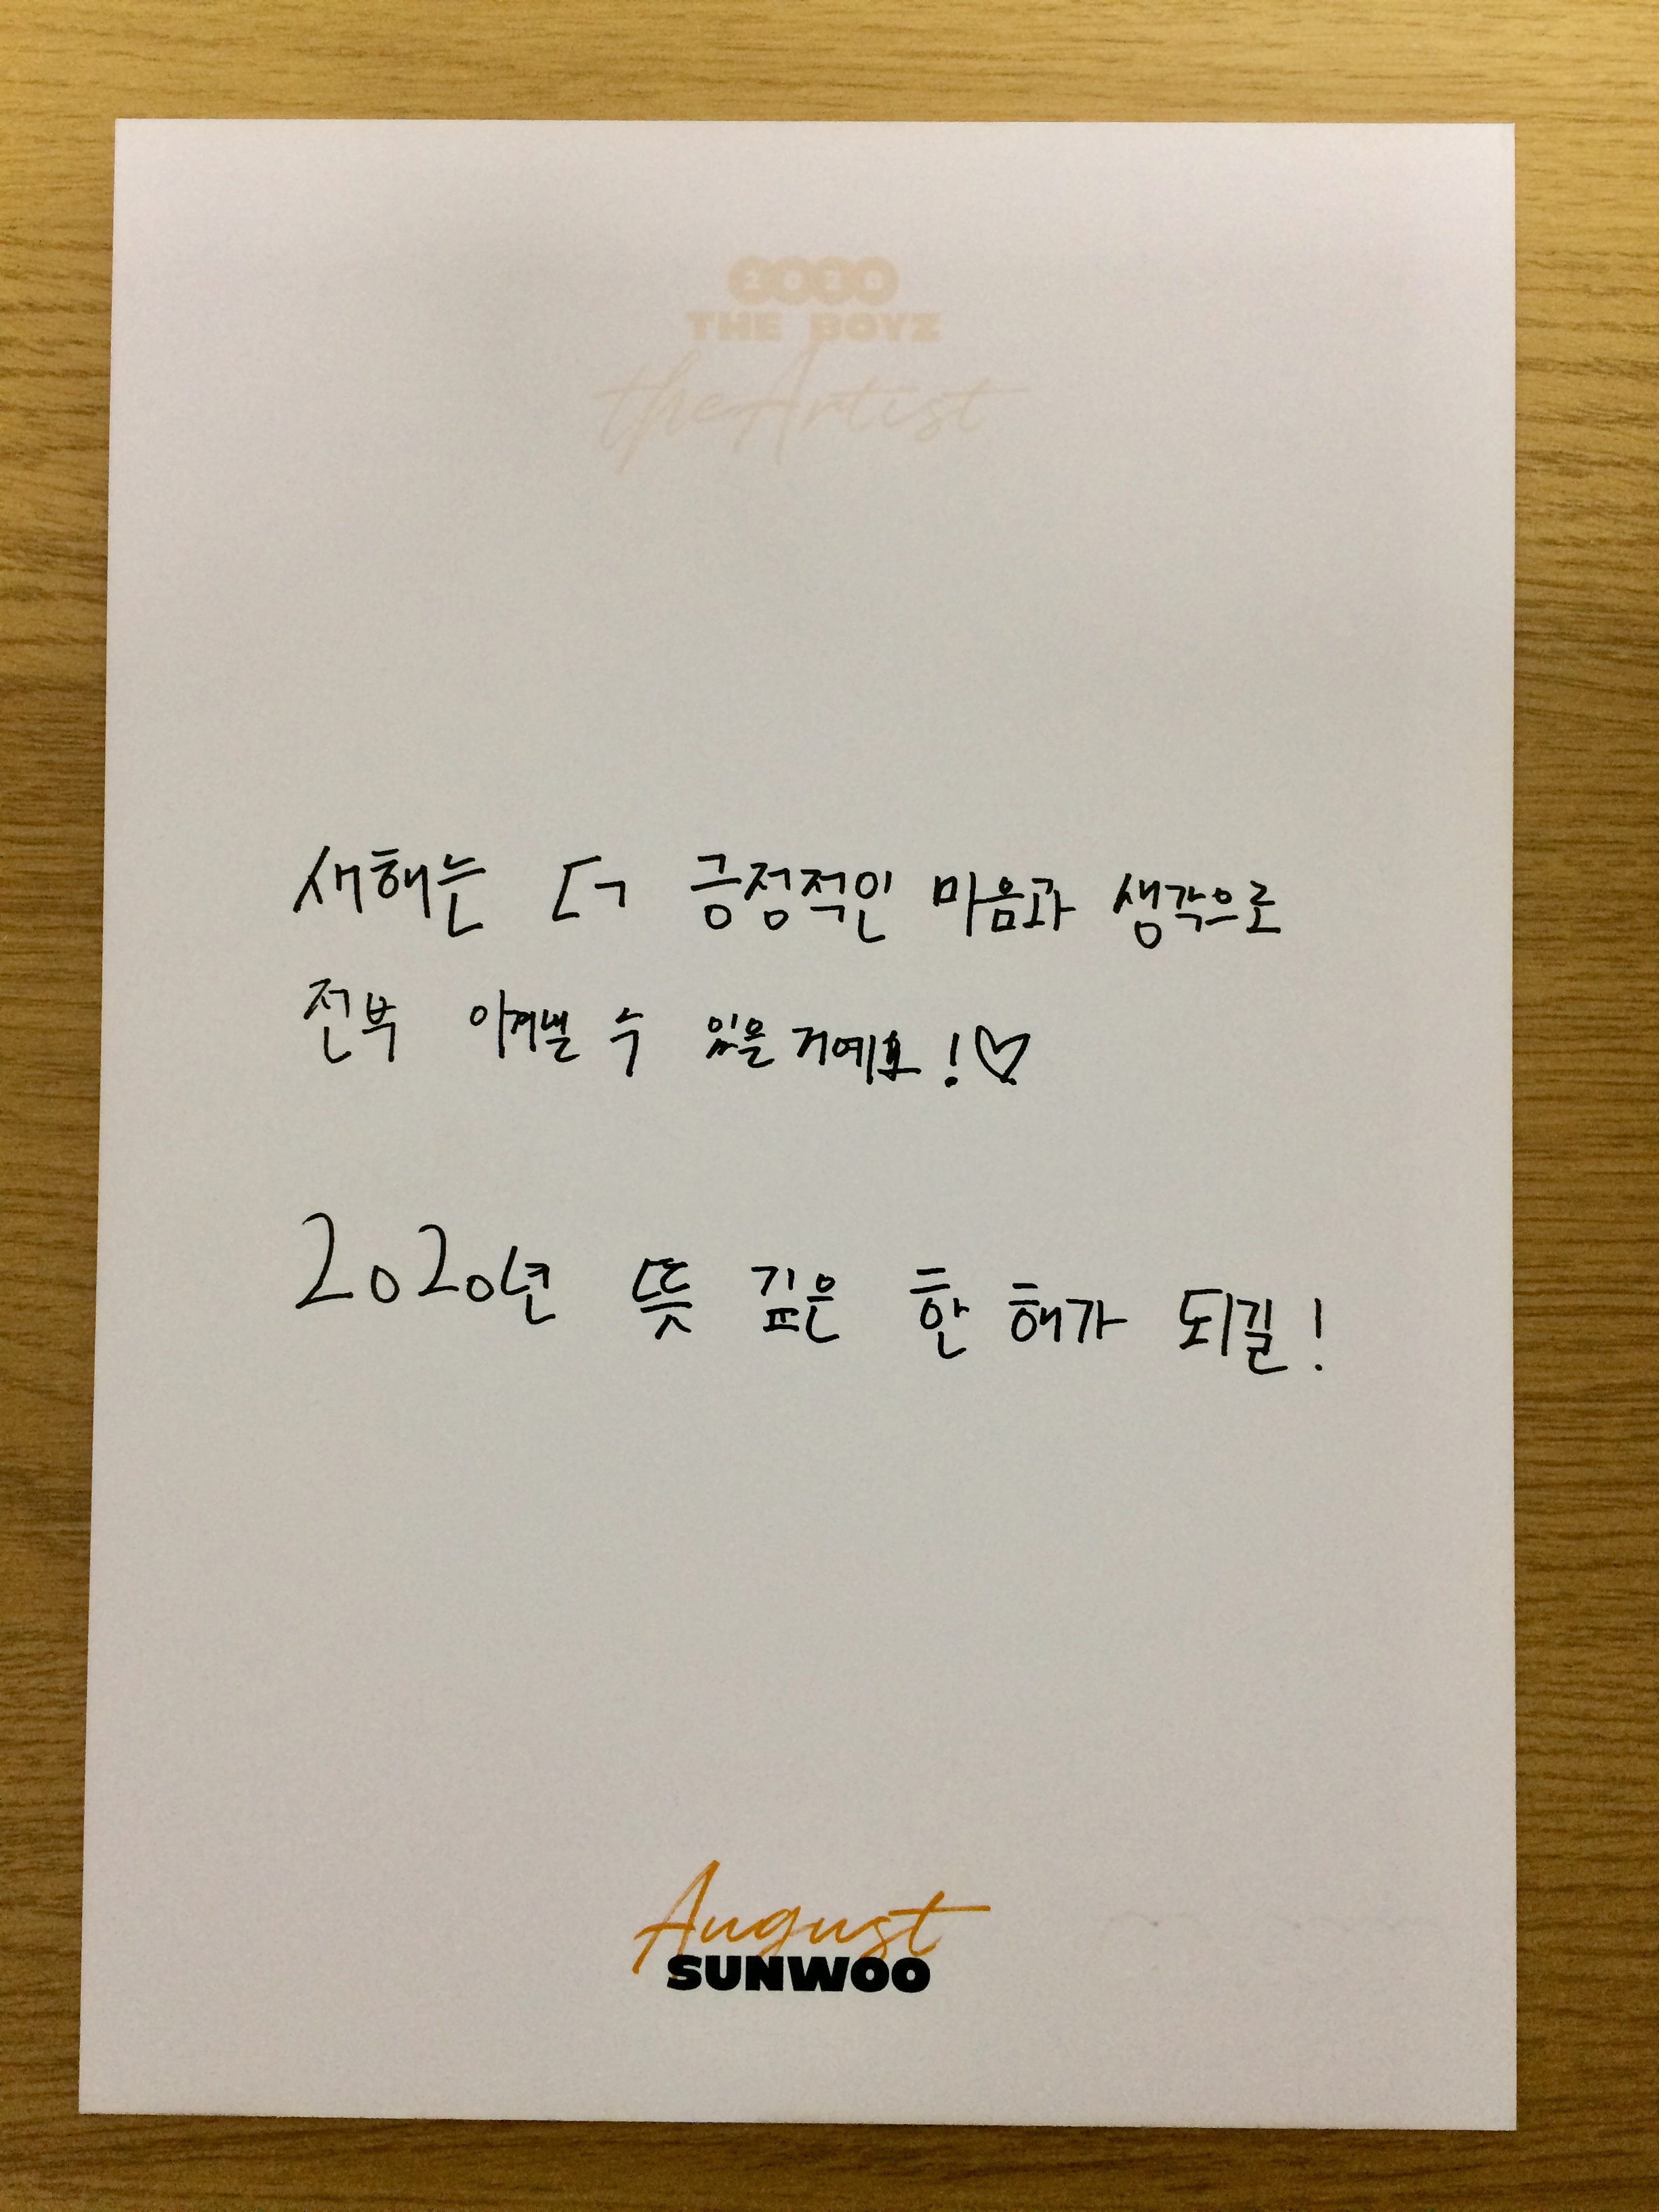 2020
THE BOYZ
the Artist
새해는 더 긍정적인 마음과 생각으로
전부 이겨낼 수 있을 거예요!♡
2020년 뜻 깊은 한 해가 되길!
August
SUNWOO